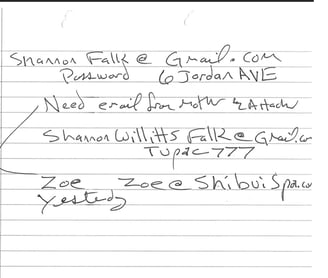 Shannon Falk@ Gmail.com
Password 6 Jordan AVE
Need email from Mother & Attach
Shannon Willitts Falk@ Gmail.co
Tupac 777
Zoe Zoe@ Shibui Spa.co